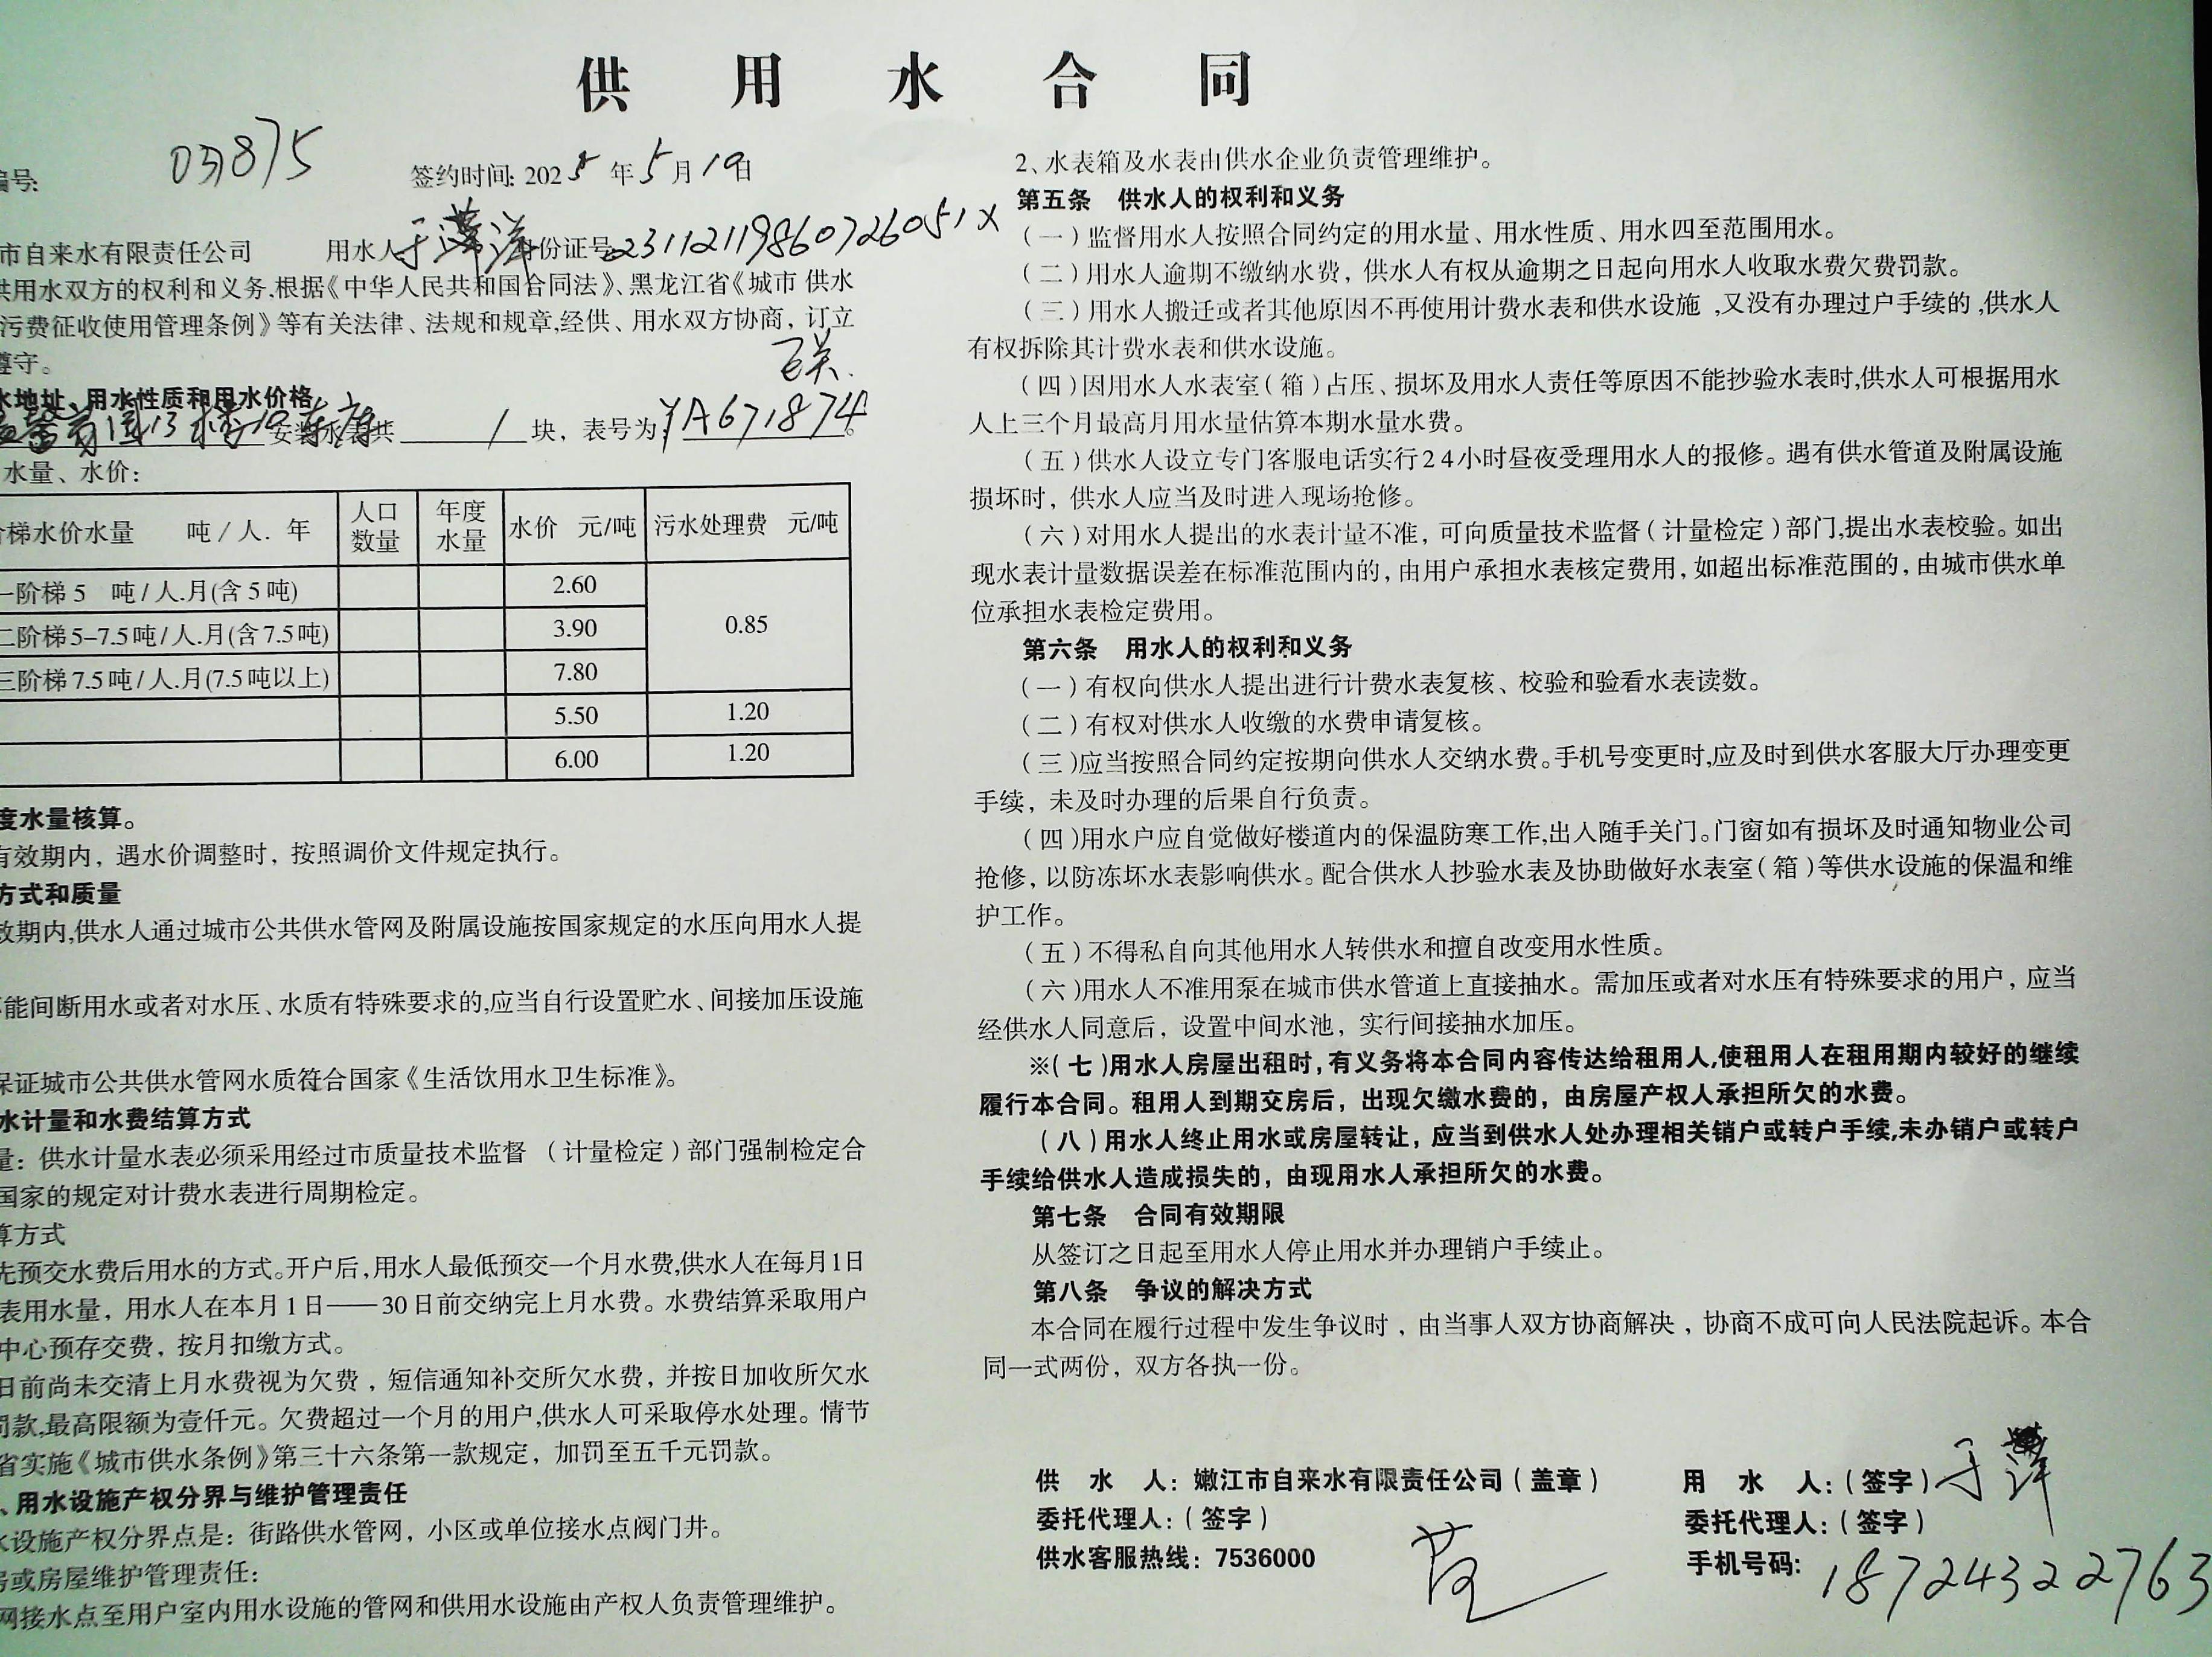 供 用 水 合 同
编号: 03875
签约时间: 2025年5月19日
市自来水有限责任公司 用水人 于 洋 身份证号 23112119860726051X
供用水双方的权利和义务,根据《中华人民共和国合同法》、黑龙江省《城市 供水
污费征收使用管理条例》等有关法律、法规和规章,经供、用水双方协商，订立
遵守。
水地址、用水性质和用水价格
13 安装水表共 1 块，表号为 YA671874。
水量、水价：
阶梯水价水量 吨/人. 年 人口数量 年度水量 水价 元/吨 污水处理费 元/吨
一阶梯 5 吨/人.月(含5吨) 2.60 0.85
二阶梯5-7.5吨/人.月(含7.5吨) 3.90
三阶梯7.5吨/人.月(7.5吨以上) 7.80
5.50 1.20
6.00 1.20
度水量核算。
有效期内，遇水价调整时，按照调价文件规定执行。
方式和质量
效期内,供水人通过城市公共供水管网及附属设施按国家规定的水压向用水人提
能间断用水或者对水压、水质有特殊要求的,应当自行设置贮水、间接加压设施
保证城市公共供水管网水质符合国家《生活饮用水卫生标准》。
水计量和水费结算方式
量：供水计量水表必须采用经过市质量技术监督 （计量检定）部门强制检定合
国家的规定对计费水表进行周期检定。
算方式
先预交水费后用水的方式。开户后,用水人最低预交一个月水费,供水人在每月1日
表用水量，用水人在本月1日——30日前交纳完上月水费。水费结算采取用户
中心预存交费，按月扣缴方式。
日前尚未交清上月水费视为欠费，短信通知补交所欠水费，并按日加收所欠水
罚款,最高限额为壹仟元。欠费超过一个月的用户,供水人可采取停水处理。情节
省实施《城市供水条例》第三十六条第一款规定，加罚至五千元罚款。
、用水设施产权分界与维护管理责任
水设施产权分界点是：街路供水管网，小区或单位接水点阀门井。
房或房屋维护管理责任：
网接水点至用户室内用水设施的管网和供用水设施由产权人负责管理维护。
2、水表箱及水表由供水企业负责管理维护。
第五条 供水人的权利和义务
（一）监督用水人按照合同约定的用水量、用水性质、用水四至范围用水。
（二）用水人逾期不缴纳水费，供水人有权从逾期之日起向用水人收取水费欠费罚款。
（三）用水人搬迁或者其他原因不再使用计费水表和供水设施 ,又没有办理过户手续的 ,供水人
有权拆除其计费水表和供水设施。
（四）因用水人水表室（箱）占压、损坏及用水人责任等原因不能抄验水表时,供水人可根据用水
人上三个月最高月用水量估算本期水量水费。
（五）供水人设立专门客服电话实行24小时昼夜受理用水人的报修。遇有供水管道及附属设施
损坏时，供水人应当及时进入现场抢修。
（六）对用水人提出的水表计量不准，可向质量技术监督（计量检定）部门,提出水表校验。如出
现水表计量数据误差在标准范围内的，由用户承担水表核定费用，如超出标准范围的，由城市供水单
位承担水表检定费用。
第六条 用水人的权利和义务
（一）有权向供水人提出进行计费水表复核、校验和验看水表读数。
（二）有权对供水人收缴的水费申请复核。
（三）应当按照合同约定按期向供水人交纳水费。手机号变更时,应及时到供水客服大厅办理变更
手续，未及时办理的后果自行负责。
（四）用水户应自觉做好楼道内的保温防寒工作,出人随手关门。门窗如有损坏及时通知物业公司
抢修，以防冻坏水表影响供水。配合供水人抄验水表及协助做好水表室（箱）等供水设施的保温和维
护工作。
（五）不得私自向其他用水人转供水和擅自改变用水性质。
（六）用水人不准用泵在城市供水管道上直接抽水。需加压或者对水压有特殊要求的用户，应当
经供水人同意后，设置中间水池，实行间接抽水加压。
※（七）用水人房屋出租时,有义务将本合同内容传达给租用人,使租用人在租用期内较好的继续
履行本合同。租用人到期交房后，出现欠缴水费的，由房屋产权人承担所欠的水费。
（八）用水人终止用水或房屋转让，应当到供水人处办理相关销户或转户手续,未办销户或转户
手续给供水人造成损失的，由现用水人承担所欠的水费。
第七条 合同有效期限
从签订之日起至用水人停止用水并办理销户手续止。
第八条 争议的解决方式
本合同在履行过程中发生争议时，由当事人双方协商解决，协商不成可向人民法院起诉。本合
同一式两份，双方各执一份。
供 水 人：嫩江市自来水有限责任公司（盖章）
委托代理人：（签字）
供水客服热线：7536000
用 水 人：（签字）于 洋
委托代理人：（签字）
手机号码: 18724322763